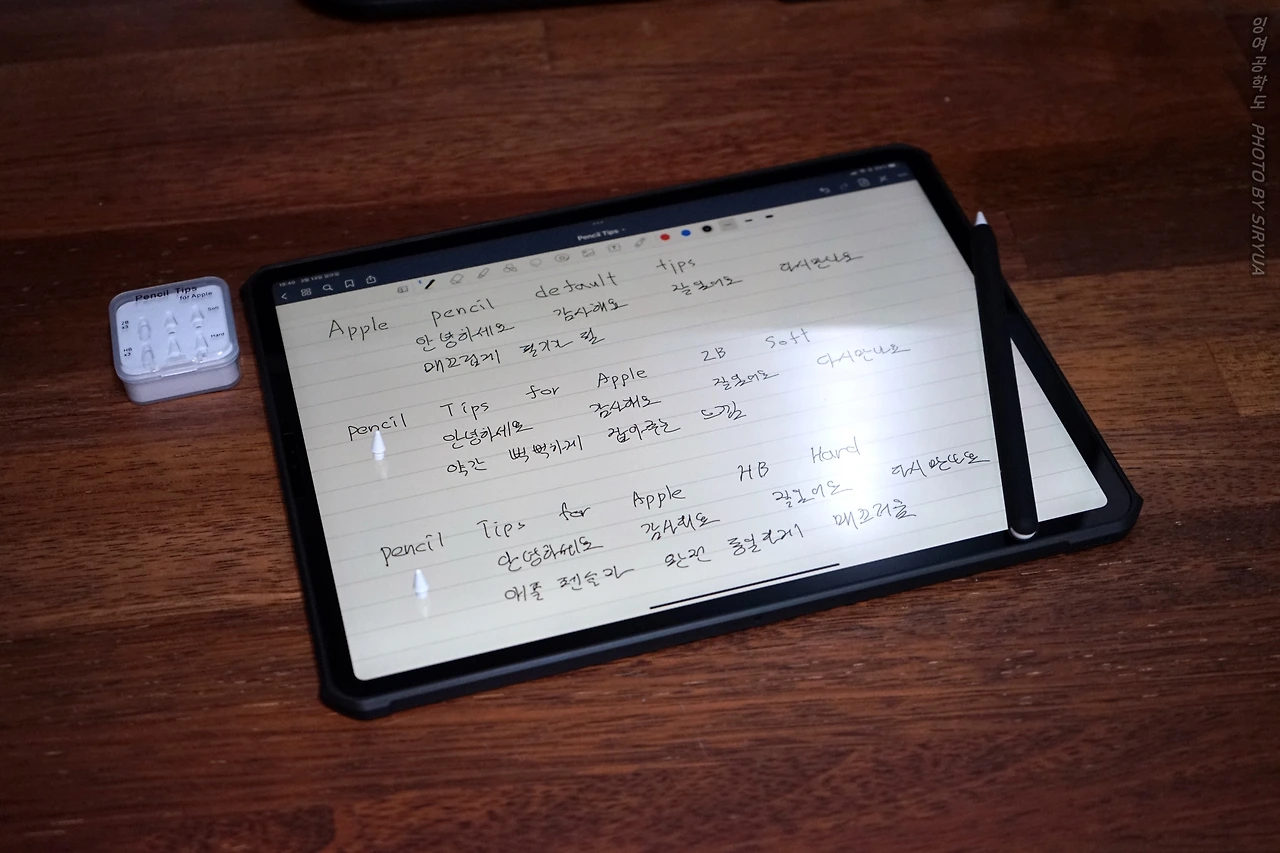 Pencil Tips
Apple pencil default tips
안녕하세요 감사해요 잘있어요 다시만나요
매끄럽게 필기가 됨
pencil Tips for Apple 2B Soft
안녕하세요 감사해요 잘있어요 다시만나요
약간 뻑뻑하게 잡아주는 느낌
pencil Tips for Apple HB Hard
안녕하세요 감사해요 잘있어요 다시만나요
애플 펜슬과 완전 동일하게 매끄러움
Pencil Tips
for Apple
2B
x3
Soft
HB
x3
Hard
PHOTO BY SIRYUA